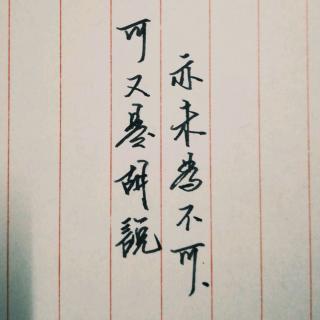 亦未為不可、
可又是胡說